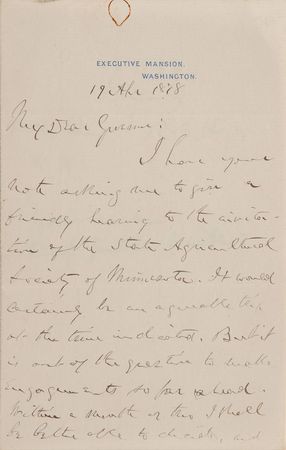 EXECUTIVE MANSION,
WASHINGTON.
19 Apl 1878
My Dear Governor:
I have your
note asking me to give a
friendly hearing to the invita-
tion of the State Agricultural
Society of Minnesota. It would
certainly be an agreeable trip
at the time indicated. But it
is out of the question to make
engagements so far ahead.
Within a month of this I shall
be better able to decide, and